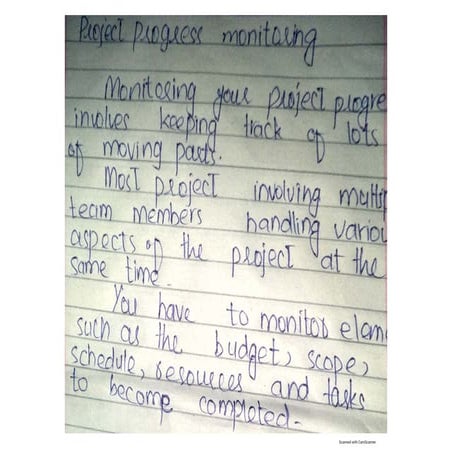 Project progress monitoring
Monitoring your project progre
involves keeping track of lots
of moving parts.
Most project involving multip
team members handling variou
aspects of the project at the
same time.
You have to monitor elem
such as the budget, scope,
schedule, resources and tasks
to become completed.
Scanned with CamScanner